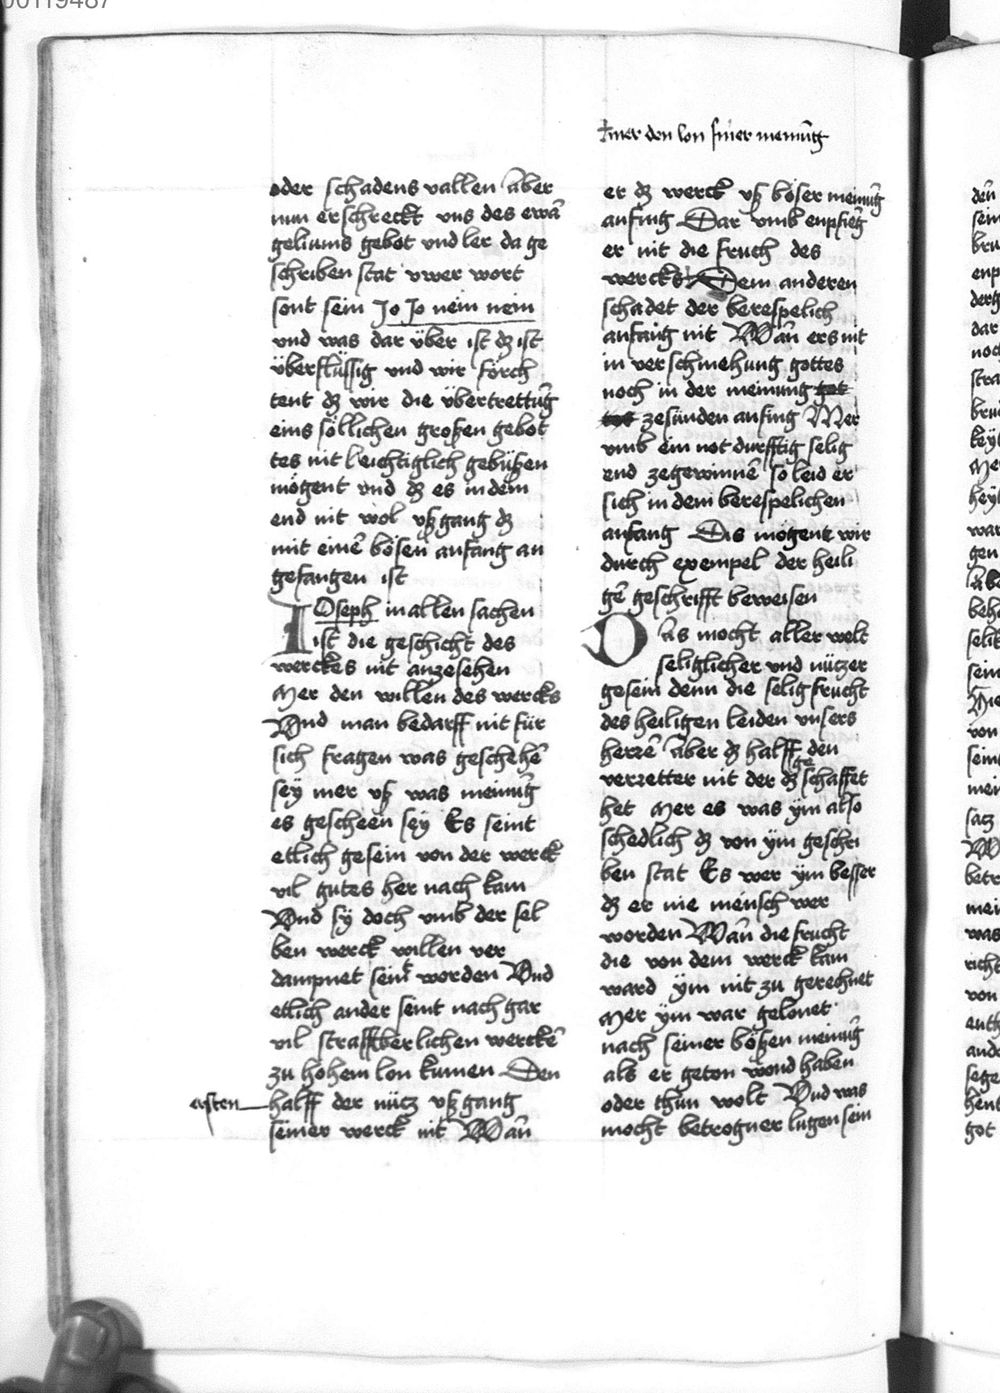 00119487
†mer den lon siner meinūg
oder schadens vallen aber
nun erschreckt vns des ewā
geliums gebot vnd ler da ge
schriben stat vwer wort
sont sein Jo Jo nein nein
vnd was dar über ist dz ist
überflüssig vnd wir förch
tent dz wir die übertrettūg
eins söllichen großen gebot
tes nit leichtiglich gebüßen
mögent vnd dz es in dem
end nit wol vßgang dz
mit einē bösen anfang an
gefangen ist
IOseph in allen sachen
ist die geschicht des
werckes nit anzesehen
Mer den willen des wercks
Vnd man bedarff nit für
sich fragen was geschehē
sey mer vß was meinūg
es gescheen sey Es seint
etlich gesein von der werck
vil gutes her nach kam
Vnd sÿ doch vmb der sel
ben werck willen ver
dampnet seint worden Vnd
etlich ander seint nach gar
vil straffberlichen werckē
zu hohem lon kumen Den
ersten halff der nücz vßgang
seiner werck nit Wān
er dz werck vß böser meinūg
anfing Dar vmb enpfieg
er nit die fruch des
wercks Dem anderen
schadet der berespelich
anfang nit Wān ers nit
in verschmehung gottes
noch in der meinung got
tot zesünden anfing Mer
vmb ein notdurfftig selig
end zegewinnē so leid er
sich in dem berespelichen
anfang Dis mögent wir
durch exempel der heili
gē geschrifft beweisen
Was mocht aller welt
seliglicher vnd nüczer
gesein denn die selig frucht
des heiligen leiden vnsers
herrē aber dz halff den
verretter nit der dz geschaffet
het Mer es was ÿm also
schedlich dz von ÿm geschri
ben stat Es wer ÿm besser
dz er nie mensch wer
worden Wān die frucht
die von dem werck kam
ward ÿm nit zu gerechnet
Mer ÿm war gelonet
nach seiner bößen meinūg
als er geton wond haben
oder thun wolt Vnd was
mocht betrogner lugen sein